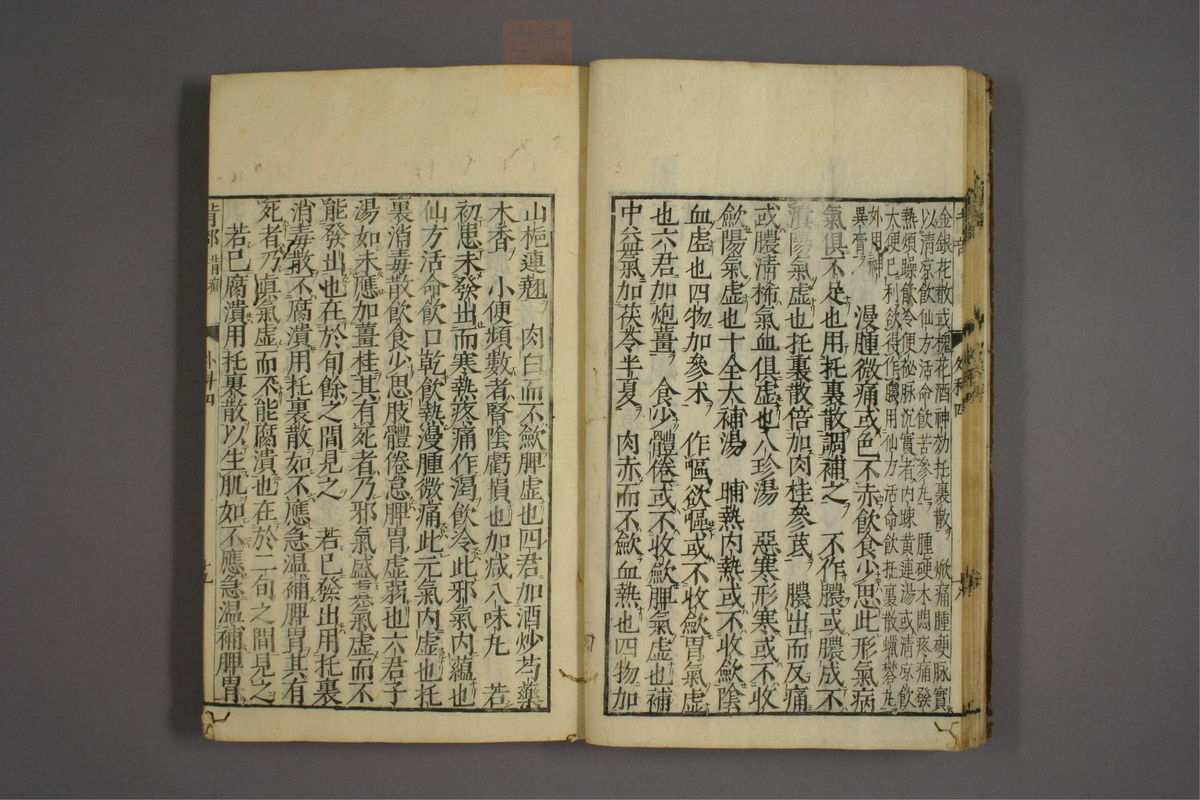 金銀花散或槐花酒神効托裏散 焮痛腫硬脉實
以清凉飲仙方活命飲苦參丸 腫硬木悶疼痛發
熱煩躁飲冷便秘脉沉實者内疎黄連湯或清凉飲
大便已利飲得作膿用仙方活命飲托裏散蠟礬丸
外用神異膏 漫腫微痛或色不赤飲食少思此形氣病
氣俱不足也用托裏散調補之 不作膿或膿成不
潰陽氣虚也托裏散倍加肉桂參芪 膿出而反痛
或膿清稀氣血俱虚也八珍湯 惡寒形寒或不收
斂陽氣虚也十全大補湯 晡熱内熱或不收斂陰
血虚也四物加參术 作嘔欲嘔或不收斂胃氣虚
也六君加炮薑 食少體倦或不收斂脾氣虚也補
中益氣加茯苓半夏 肉赤而不斂血熱也四物加
山梔連翹 肉白而不斂脾虚也四君加酒炒芍藥
木香 小便頻數者腎陰虧損也加减八味丸 若
初患未發出而寒熱疼痛作渇飲冷此邪氣内蘊也
仙方活命飲口乾飲熱漫腫微痛此元氣内虚也托
裏消毒散飲食少思肢體倦怠脾胃虚弱也六君子
湯如未應加薑桂其有死者乃邪氣盛眞氣虚而不
能發出也在於旬餘之間見之 若已發出用托裏
消毒散不腐潰用托裏散如不應急温補脾胃其有
死者乃眞氣虚而不能腐潰也在於二旬之間見之
若已腐潰用托裏散以生肌如不應急温補脾胃
外科四